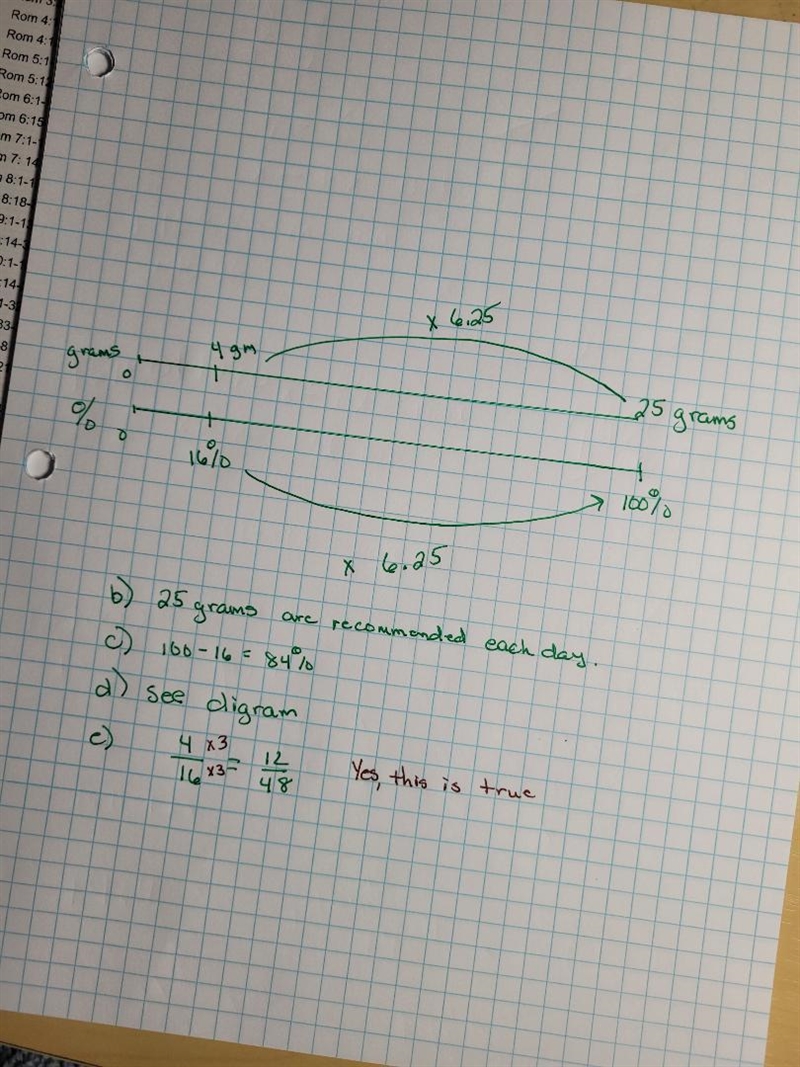 Rom 4:
Rom 4:1
Rom 5:1
Rom 5:12
Rom 6:1-
Rom 6:15
m 7:1-
m 7: 14
8:1-1
8:18-
9:1-1
:14-
0:1-
:14-
1-3
33-
8
x 6.25
grams 4 gm
0
25 grams
%
0
16% 100%
x 6.25
b) 25 grams are recommended each day.
c) 100 - 16 = 84%
d) see digram
e) 4 x3 = 12
16 x3 48
Yes, this is true